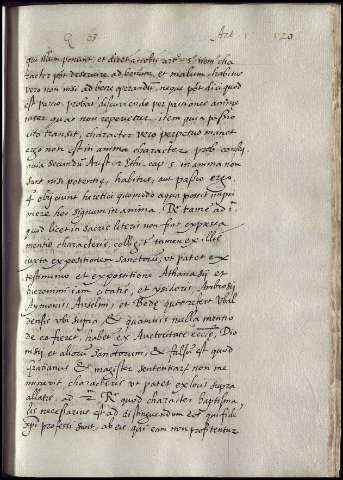 Q 63 Art 1 120
qui illum ponunt et
racter pōt deservire ad bonum, et malum, habitus
vero non nisi ad bene operandū, neque pōt dici quod
est passio. probat discurrendo per passiones animę
inter quas non reperietur, item quia passio
cito transit, character vero perpetuo manet
ergo non est in anima character. prob: conseq:
quia secundū Arist 2 Ethi. cap. 5 in anima non
sunt nisi potentię, habitus, aut passio ergo.
4 obijciunt hęretici quomodo aqua potest impri
mere hoc signum in anima, R. tamē ad 1.
quod licet in sacris literis non fiat expressa
mentio characteris, colligit tamen ex illis
iuxta expositionem sanctorū, ut patet ex
testimonio et expositione Athanasij et
Hieronimi iam citatis, et ysidori, Ambrosij
Anselmi, et Bede
densis ubi supra & quamuis nulla mentio
de eo fieret, habet ex Auctoritate Dio
nisij et aliorū sanctorum, & falsū est quod
gratianus & magister sententiarū non me
minerit characteris ut patet ex locis supra
allatis, ad 2 R. quod character baptisma
lis necessarius est ad distinguendum eos qui fidē
xpi professi sunt, ab eis qui eam non profitentur